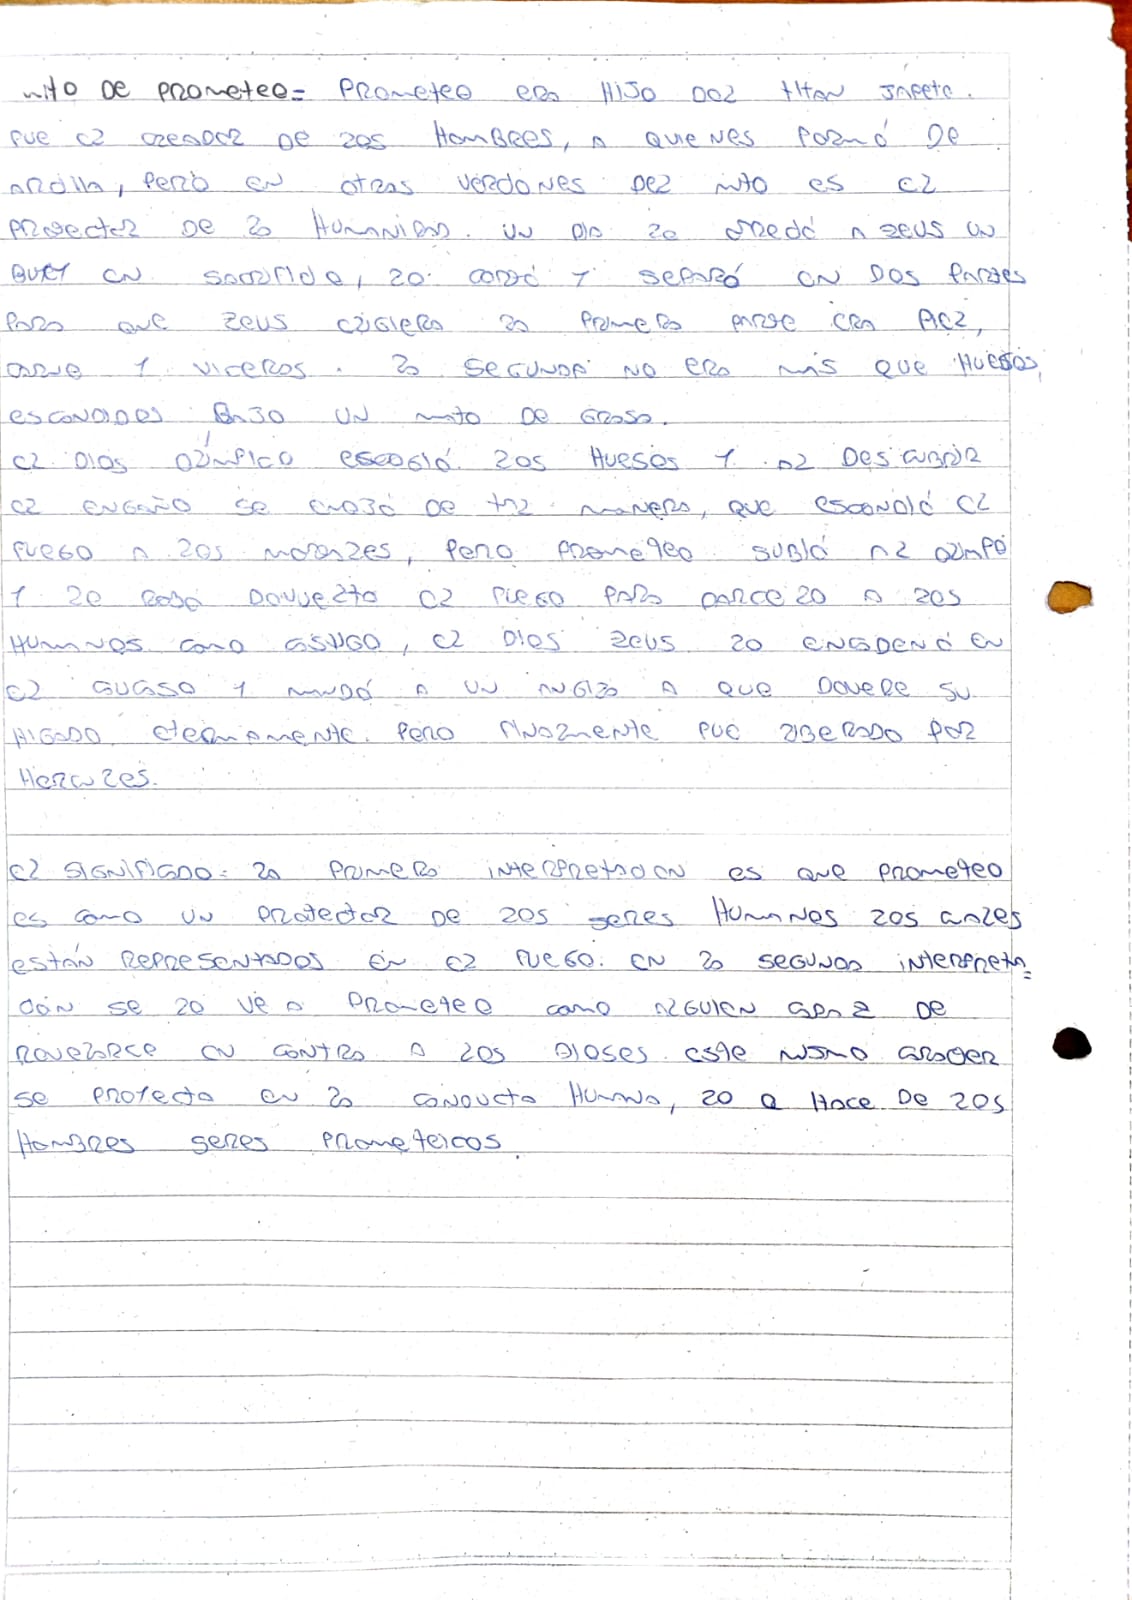 mito DE PROMETEO= PROMETEO era HIJO DEL titan JAPETO.
FUE EL CREADOR DE LOS HOMBRES, A QUIENES FORMÓ DE
arcilla, PERO EN otras versiones DEL mito es EL
PROTECTOR DE la HUMANIDAD. UN DIA le ofreció A ZEUS UN
BUEY EN sacrificio, lo cortó Y SEPARÓ EN DOS PARTES
PARA QUE ZEUS eligiera la PRIMERA parte era PIEL,
carne Y viceras. la SEGUNDA NO ERA mas QUE HUESOS,
ESCONDIDOS BAJO UN manto DE Grasa.
EL DIOS Olímpico escogió los HUESOS Y al DESCUBRIR
EL ENGAÑO se enojó DE tal manera, QUE escondió EL
FUEGO A los mortales, PERO PROMETEO subió al Olimpo
Y le robó EL FUEGO PARA A los
HUMANOS como castigo, EL DIOS ZEUS lo ENCADENÓ EN
EL caucaso Y mandó A UN A QUE SU
HIGADO eternamente. PERO finalmente FUE liberado POR
Hercules.
EL SIGNIFICADO: la PRIMERA interpretacion es QUE PROMETEO
es como UN PROTECTOR DE los seres HUMANOS los cuales
están REPRESENTADOS EN EL FUEGO. EN la SEGUNDA interpreta=
ción se lo vé a PROMETEO como alguien capaz DE
revelarce EN contra A los DIOSES. este mismo caracter
se proyecta EN la CONDUCTA HUMANA, lo Q HACE DE los
HOMBRES seres PROMETEICOS.